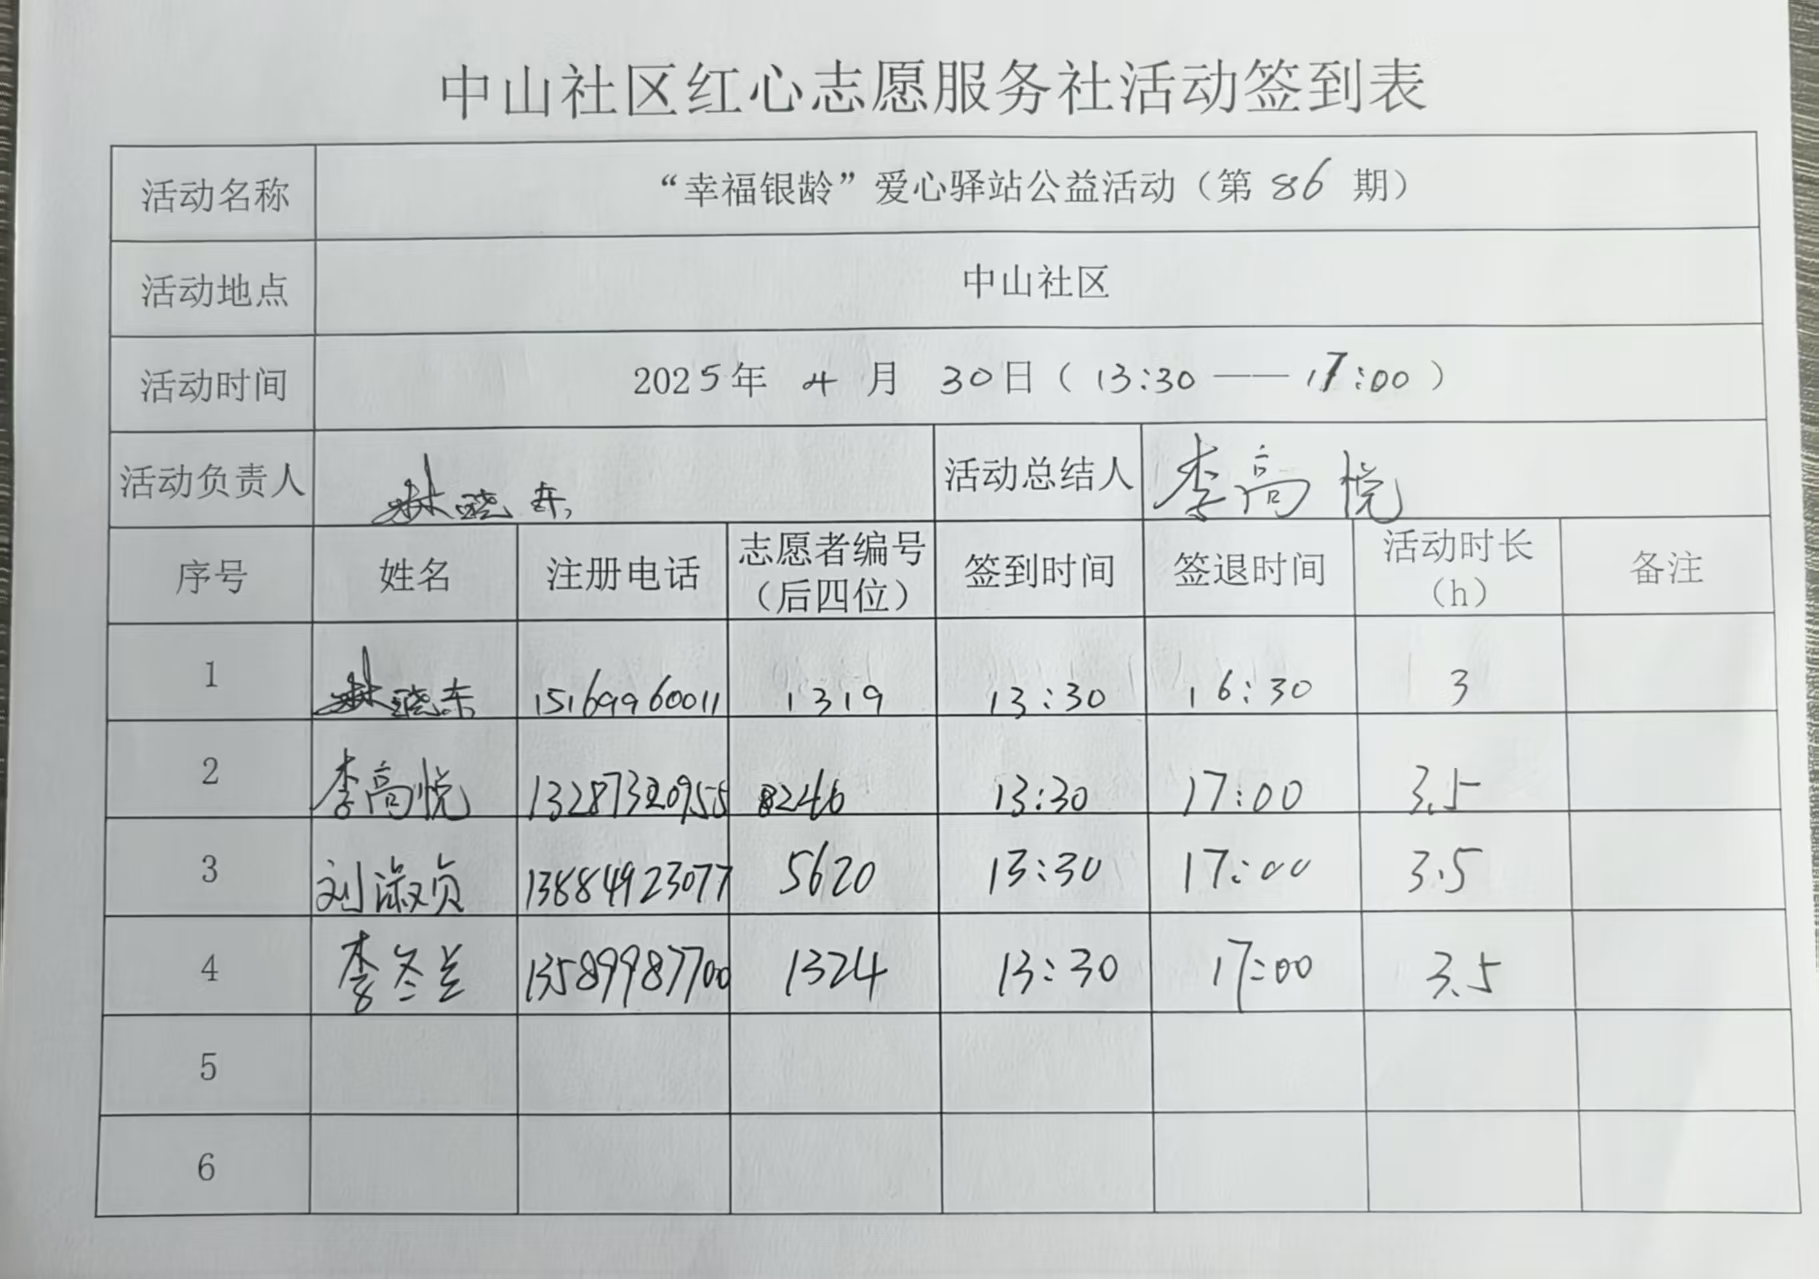 中山社区红心志愿服务社活动签到表
活动名称 “幸福银龄”爱心驿站公益活动（第 86 期）
活动地点 中山社区
活动时间 2025年 4 月 30日（13:30 —— 17:00）
活动负责人 林晓东 活动总结人 李高悦
序号 姓名 注册电话 志愿者编号（后四位） 签到时间 签退时间 活动时长（h） 备注
1 林晓东 15169960011 1319 13:30 16:30 3
2 李高悦 13287320955 8246 13:30 17:00 3.5
3 刘淑贞 13884923077 5620 13:30 17:00 3.5
4 李冬兰 13589987700 1324 13:30 17:00 3.5
5
6